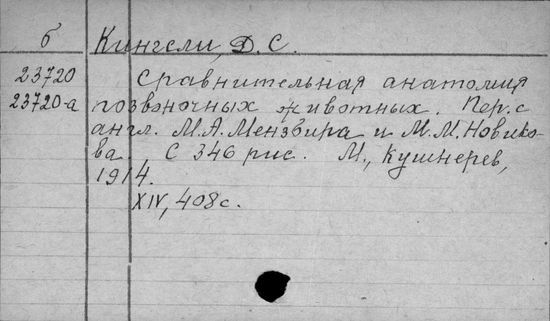 б Кингсли, Д. С.
23720 Сравнительная анатомия
23720-а позвоночных животных. Пер. с
англ. М.А. Мензбира и М.М. Новико-
ва. С 346 рис. М., Кушнерев,
1914.
XIV, 408 с.